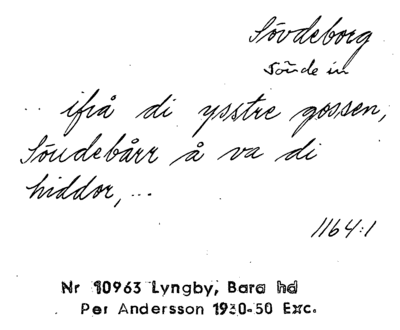 Sövdeborg
Sönde in
.. ifrå di ysstre gossen,
Söudebårr å va di
hiddor,...
1164:1
Nr 10963 Lyngby, Bara hd
Per Andersson 1930-50 Exc.